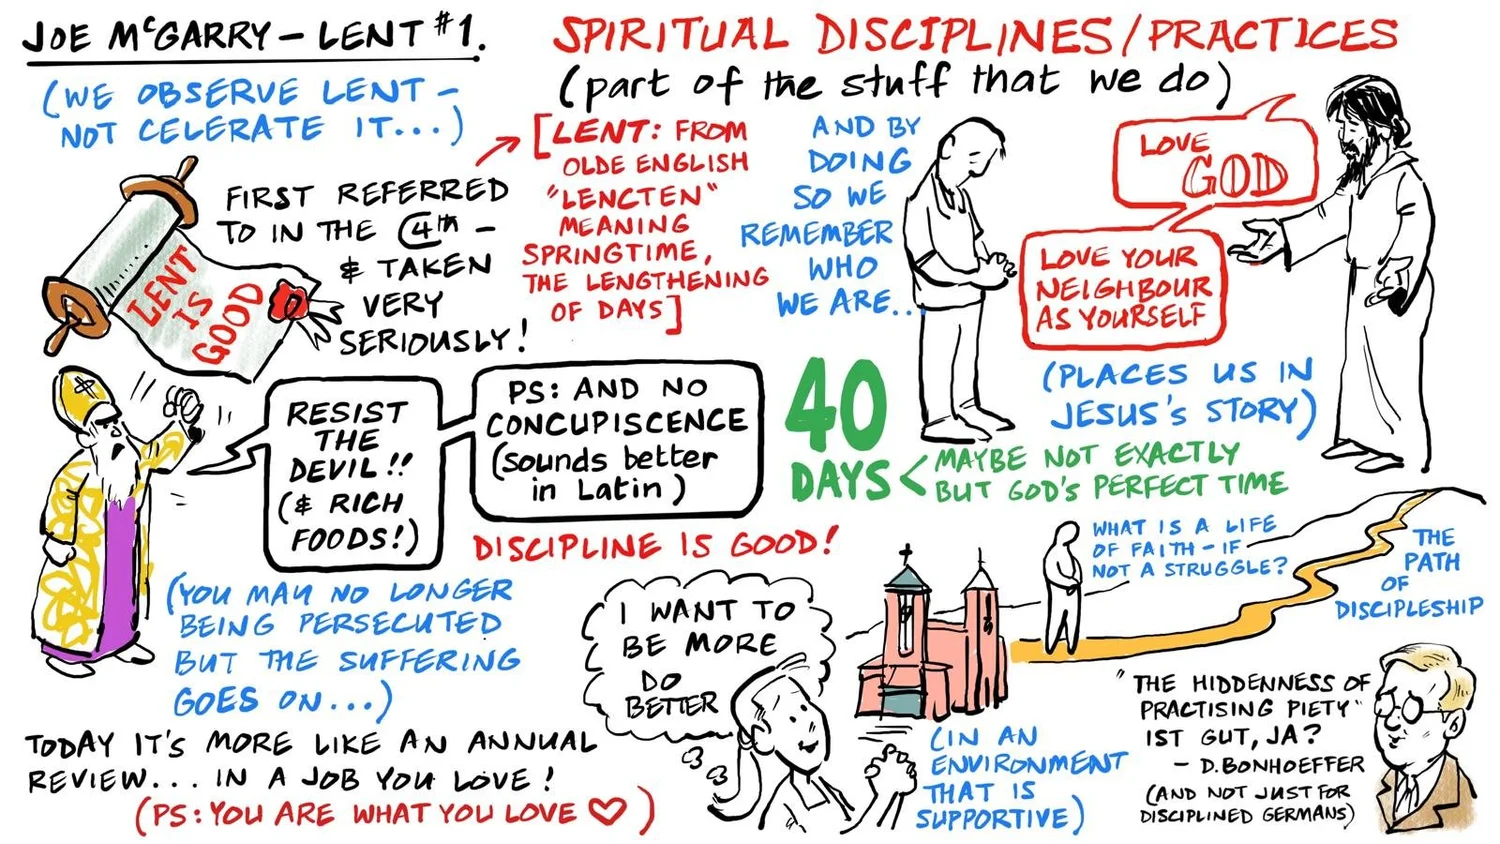 JOE McGARRY – LENT #1.
(WE OBSERVE LENT –
NOT CELERATE IT...)
SPIRITUAL DISCIPLINES/PRACTICES
(part of the stuff that we do)
LENT
IS
GOOD
FIRST REFERRED
TO IN THE 4th –
& TAKEN
VERY
SERIOUSLY!
[LENT: FROM
OLDE ENGLISH
"LENCTEN"
MEANING
SPRINGTIME,
THE LENGTHENING
OF DAYS]
AND BY
DOING
SO WE
REMEMBER
WHO
WE ARE...
LOVE
GOD
LOVE YOUR
NEIGHBOUR
AS YOURSELF
(PLACES US IN
JESUS'S STORY)
RESIST
THE
DEVIL!!
(& RICH
FOODS!)
PS: AND NO
CONCUPISCENCE
(sounds better
in Latin)
40
DAYS <
MAYBE NOT EXACTLY
BUT GOD'S PERFECT TIME
DISCIPLINE IS GOOD!
(YOU MAY NO LONGER
BEING PERSECUTED
BUT THE SUFFERING
GOES ON...)
I WANT TO
BE MORE
DO
BETTER
WHAT IS A LIFE
OF FAITH – IF
NOT A STRUGGLE?
THE
PATH
OF
DISCIPLESHIP
TODAY IT'S MORE LIKE AN ANNUAL
REVIEW... IN A JOB YOU LOVE!
(PS: YOU ARE WHAT YOU LOVE ♡)
(IN AN
ENVIRONMENT
THAT IS
SUPPORTIVE)
"THE HIDDENNESS OF
PRACTISING PIETY"
IST GUT, JA?
– D. BONHOEFFER
(AND NOT JUST FOR
DISCIPLINED GERMANS)